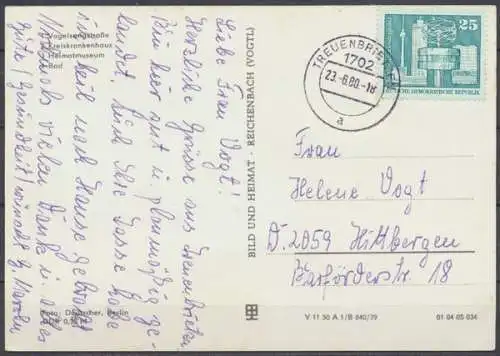 Vogelsangstraße
Kreiskrankenhaus
Heimatmuseum
Bad
Liebe Frau Vogt!
Herzliche Grüsse aus Treuenbrietzen
Bin hier gut u. planmäßig ge-
landet. Auch Ihre Tasse habe
ich heil nach Hause gebracht
Nochmals vielen Dank u. alles
gute (Gesundheit) wünscht
Foto: Darr, Berlin
BILD UND HEIMAT · REICHENBACH (VOGTL)
TREUENBRIETZEN
1702
23.-6.80.-18
a
25
DEMOKRATISCHE REPUBLIK
Frau
Helene Vogt
D. 2059 Hittbergen
Barförderstr. 18
V 11 50 A 1/B 840/79
01 04 05 034